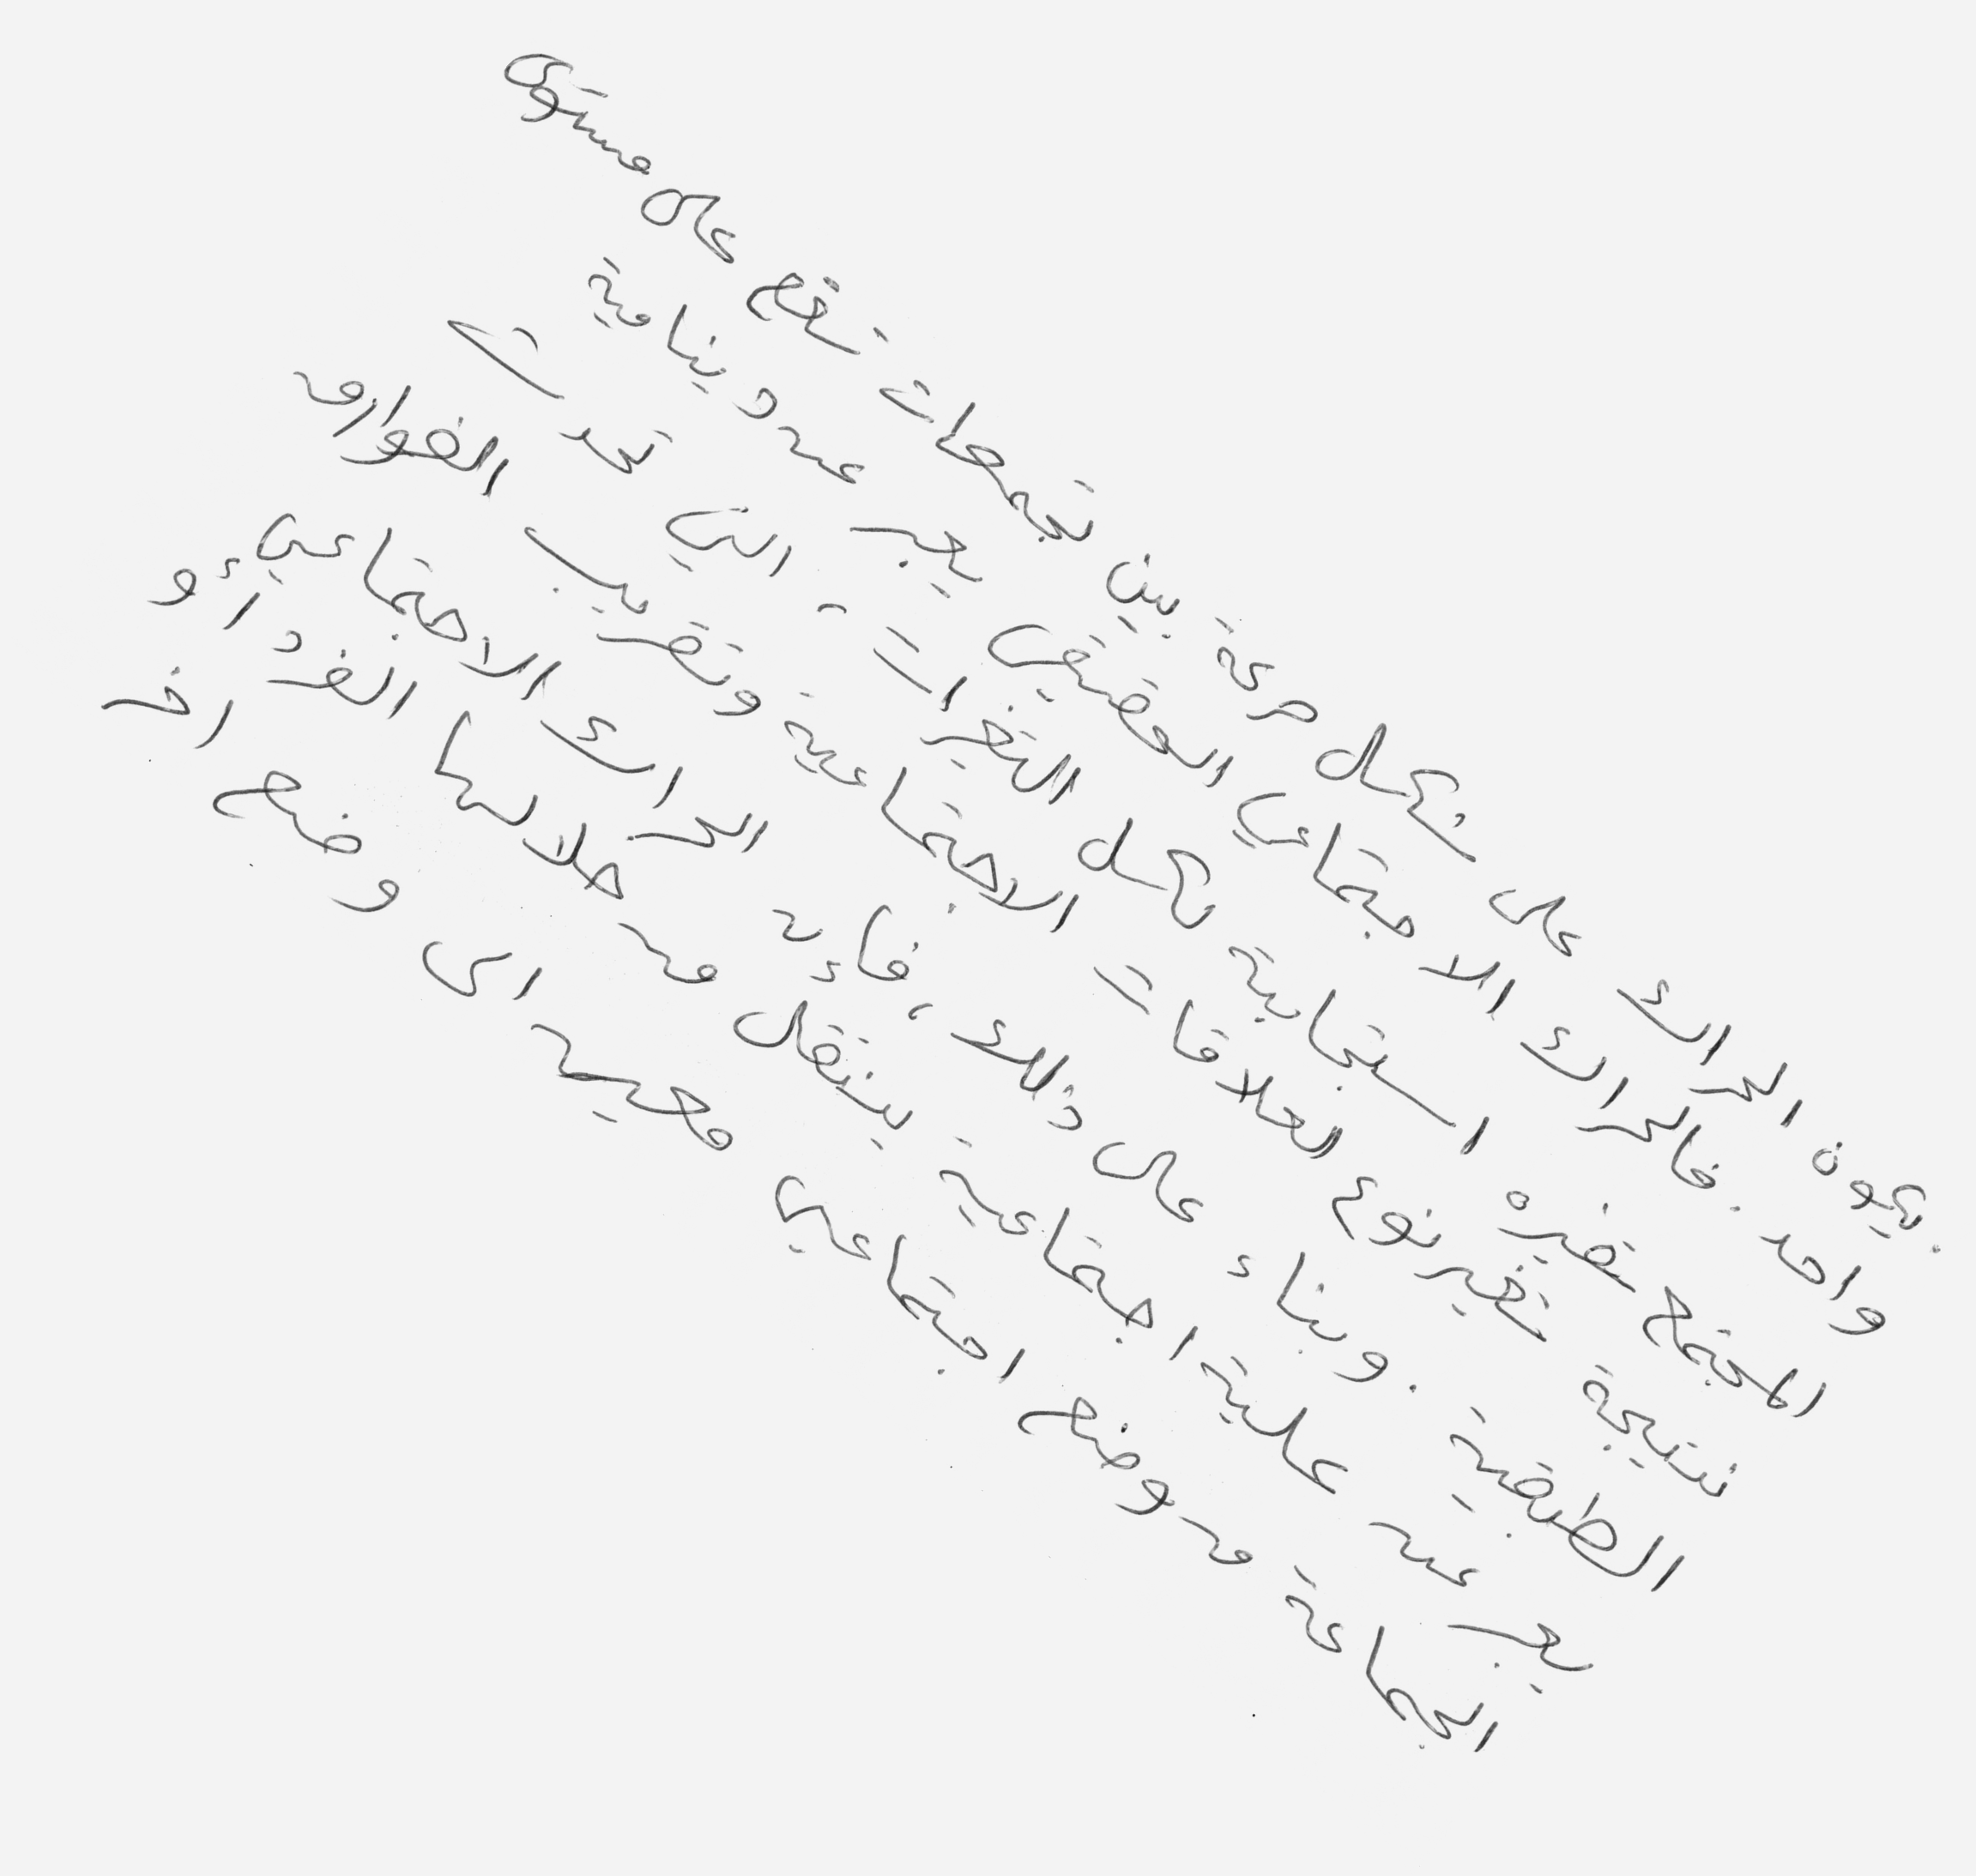 .يكون الحراك على شكل حركة بين تجمعات تقع على مستوى
واحد. فالحراك الاجتماعي الحقيقي يعبر عن دينامية
المجتمع متغيره استجابية لكل التغيرات، التي تحدث
نتيجة تغير نوع العلاقات الاجتماعية وتقريب الفوارق
الطبقية. وبناء على ذلك، فإن الحراك الاجتماعي
يعبر عن عملية اجتماعية ينتقل من خلالها الفرد أو
الجماعة من وضع اجتماعي معين الى وضع اخر